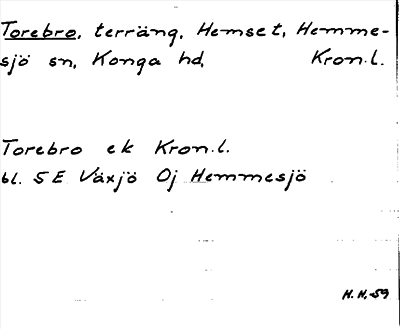 Torebro, terräng, Hemset, Hemme-
sjö sn, Konga hd, Kron.l.
Torebro ek Kron.l.
bl. 5E Växjö Oj Hemmesjö
H.H.-59